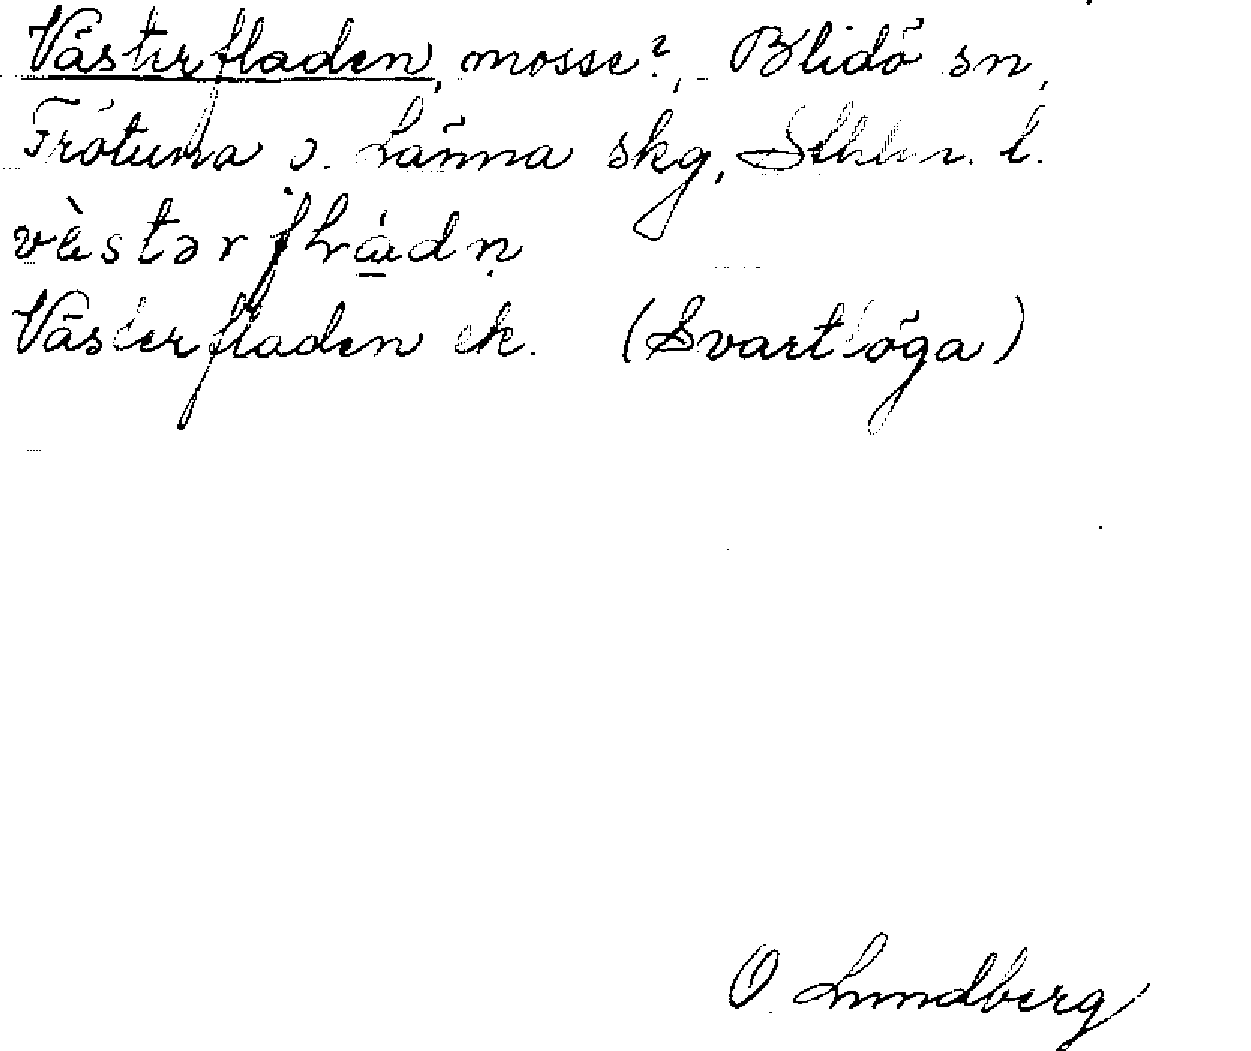 Västerfladen, mosse?, Blidö sn,
Frötuna o. Länna skg, Sthlm. l.
vä̀stər flá̱dṇ
Västerfladen ek. (Svartlöga)
O Lundberg